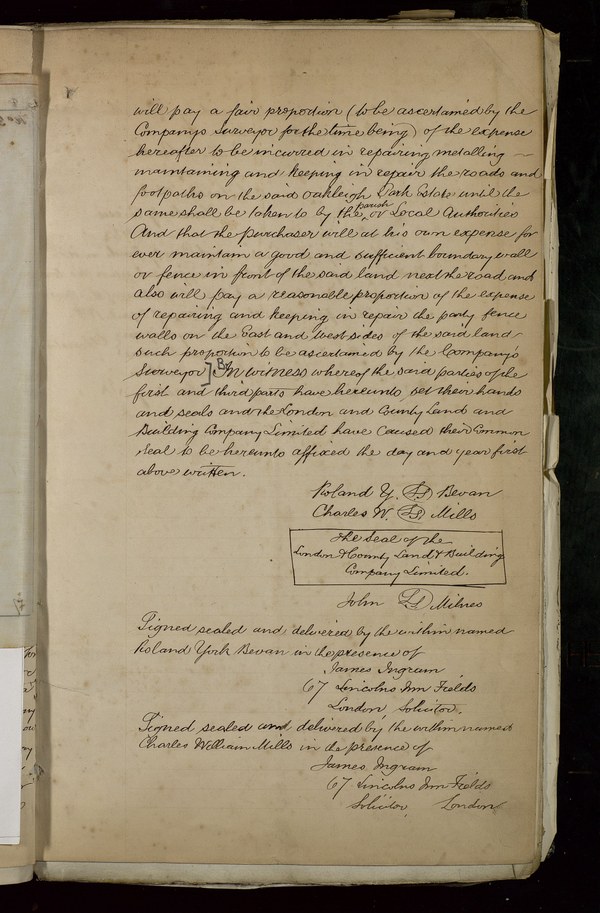 will pay a fair proportion (to be ascertained by the
Company's Surveyor for the time being) of the expense
hereafter to be incurred in repairing metalling —
maintaining and keeping in repair the roads and
footpaths on the said Oakleigh Park Estate until the
same shall be taken to by the parish or Local Authorities
And that the purchaser will at his own expense for
ever maintain a good and sufficient boundary wall
or fence in front of the said land next the road and
also will pay a reasonable proportion of the expense
of repairing and keeping in repair the party fence
walls on the East and West sides of the said land
such proportion to be ascertained by the Company's
Surveyor In witness whereof the said parties of the
first and third parts have hereunto set their hands
and seals and the London and County Land and
Building Company Limited have caused their Common
Seal to be hereunto affixed the day and year first
above written.
Roland Y. LS Bevan
Charles W. LS Mills
The Seal of the
London & County Land & Building
Company Limited.
John LS Milnes
Signed sealed and delivered by the within named
Roland York Bevan in the presence of
James Ingram
67 Lincolns Inn Fields
London, Solicitor.
Signed sealed and delivered by the within named
Charles William Mills in the presence of
James Ingram
67 Lincolns Inn Fields
Solicitor London